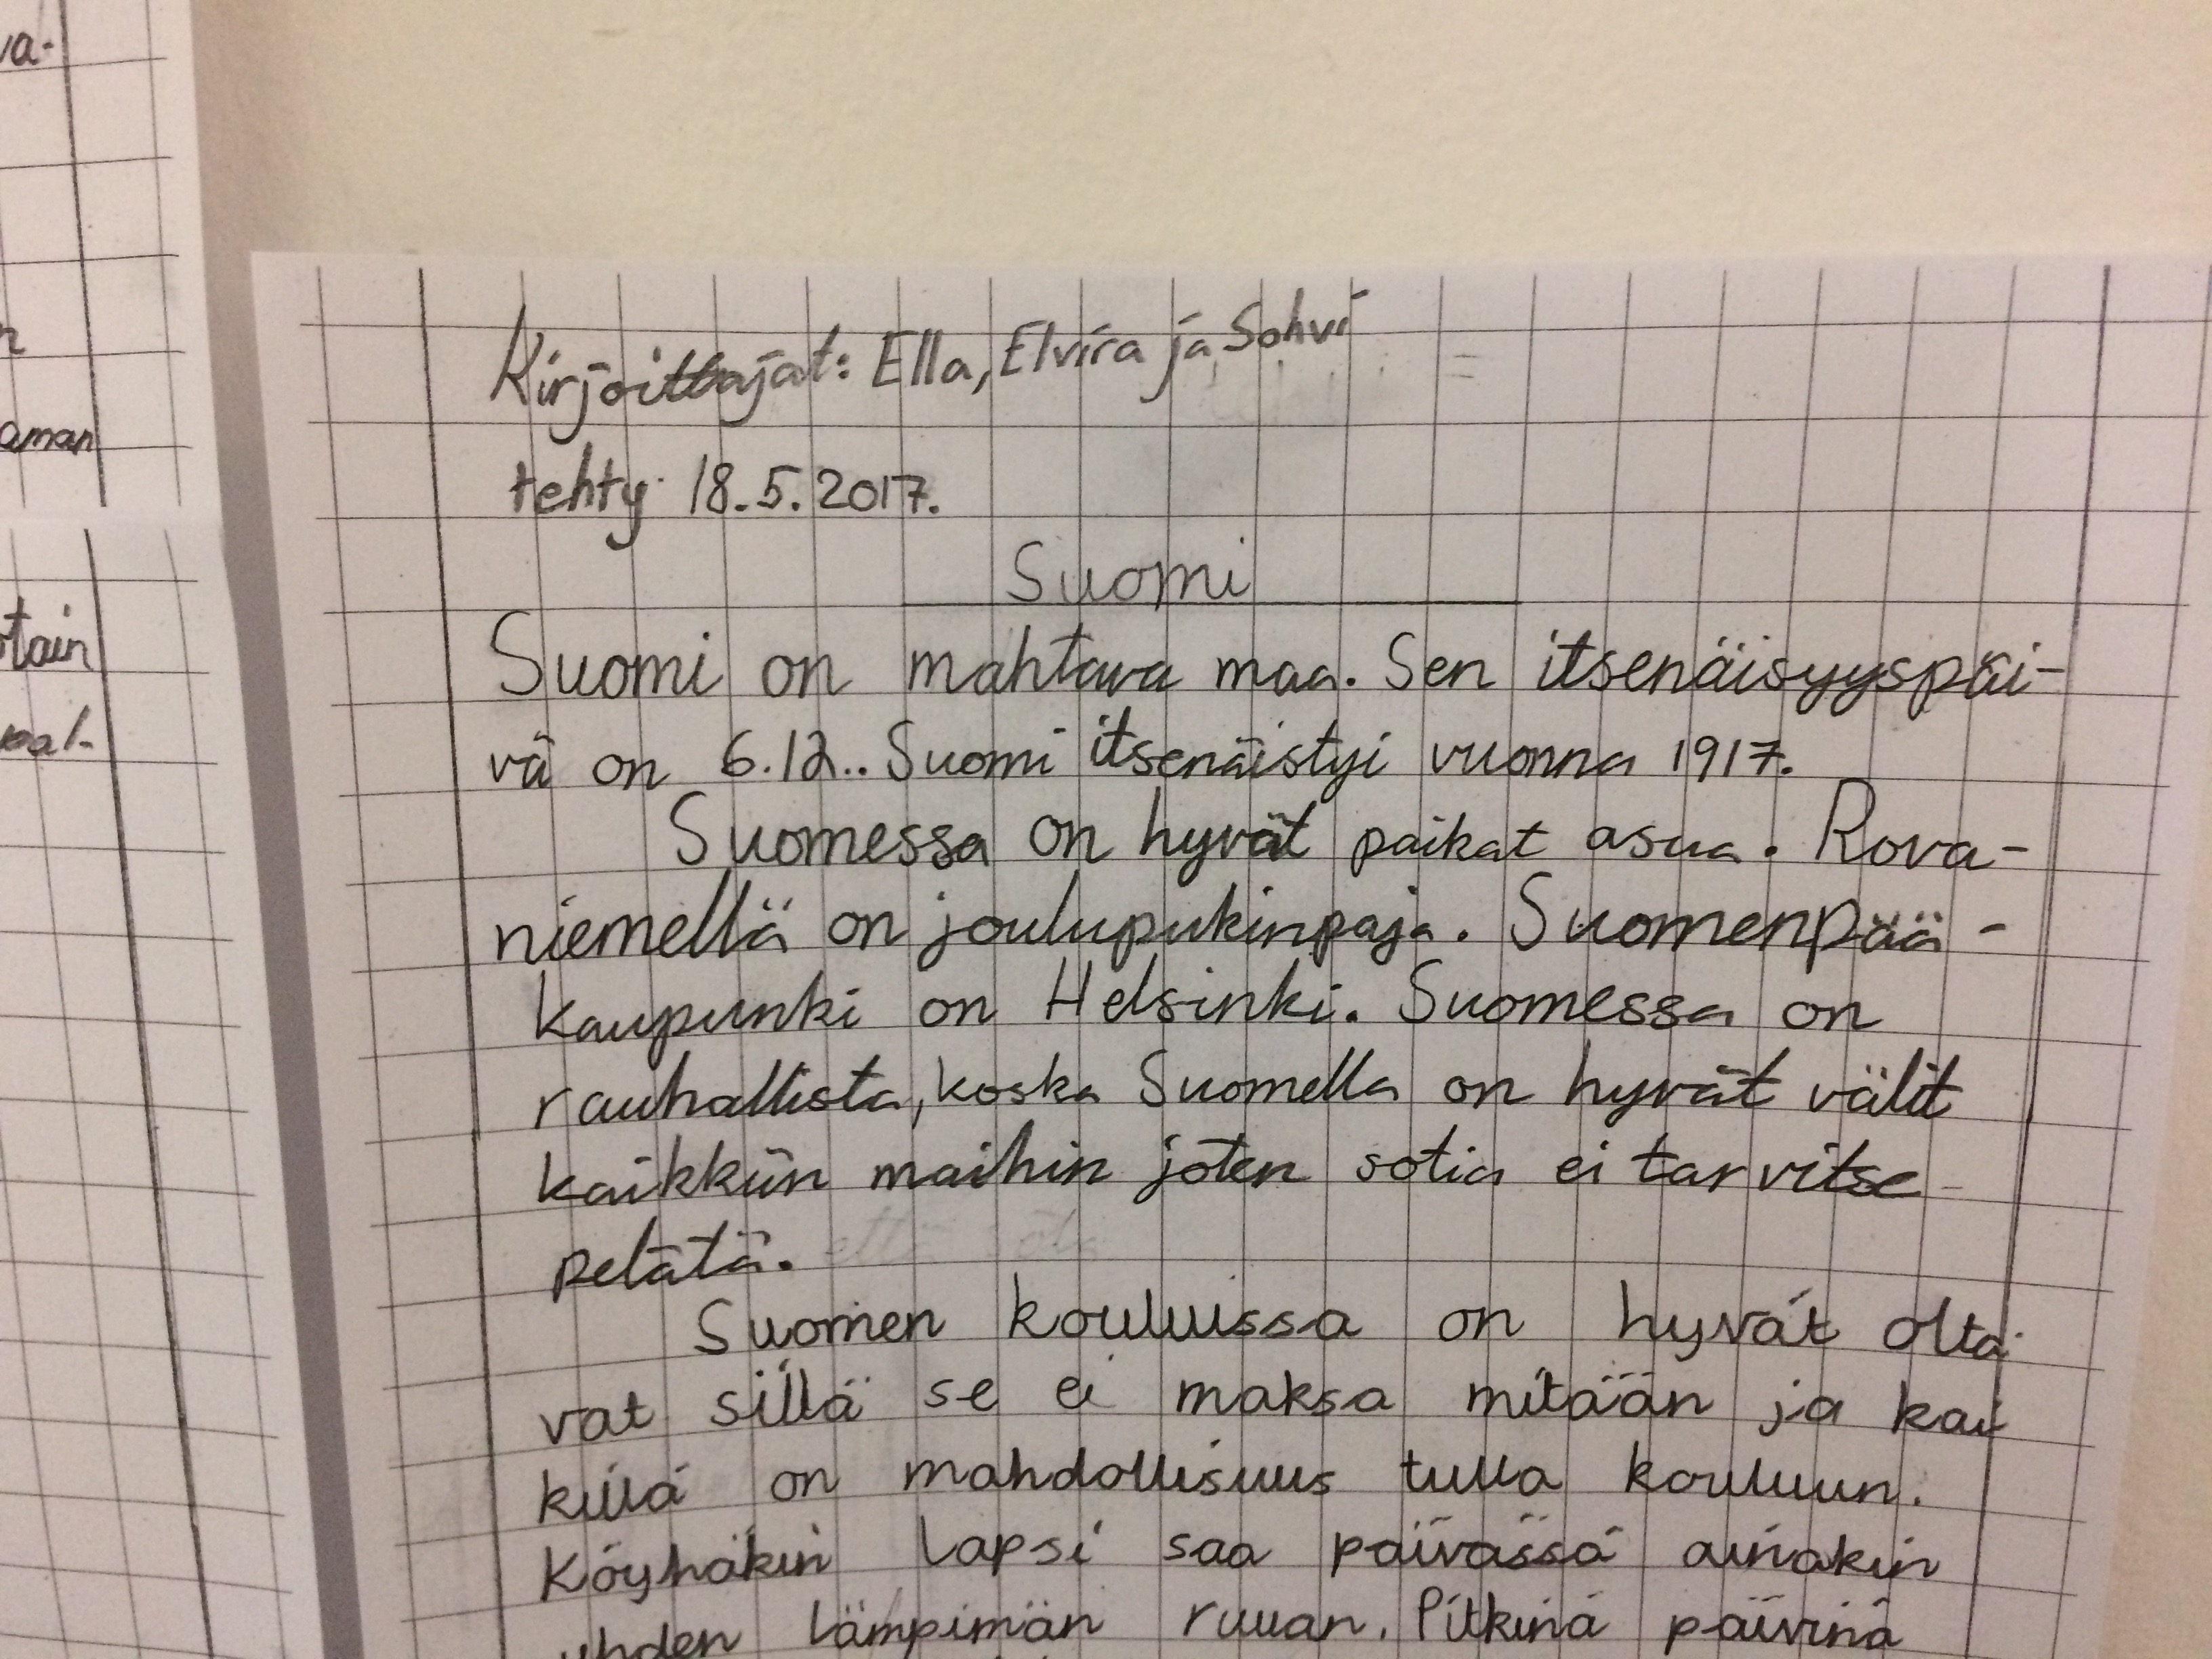 va-
n
aman
tain
pal-
Kirjoittajat: Ella, Elvira ja Sohvi
tehty 18.5.2017.
Suomi
Suomi on mahtava maa. Sen itsenäisyyspäi-
vä on 6.12.. Suomi itsenäistyi vuonna 1917.
Suomessa on hyvät paikat asua. Rova-
niemellä on joulupukinpaja. Suomenpää-
kaupunki on Helsinki. Suomessa on
rauhallista, koska Suomella on hyvät välit
kaikkiin maihin joten sotia ei tarvitse
pelätä.
Suomen kouluissa on hyvät olta-
vat sillä se ei maksa mitään ja kai
killä on mahdollisuus tulla kouluun.
Köyhäkin lapsi saa päivässä ainakin
yhden lämpimän ruuan. Pitkinä päivinä